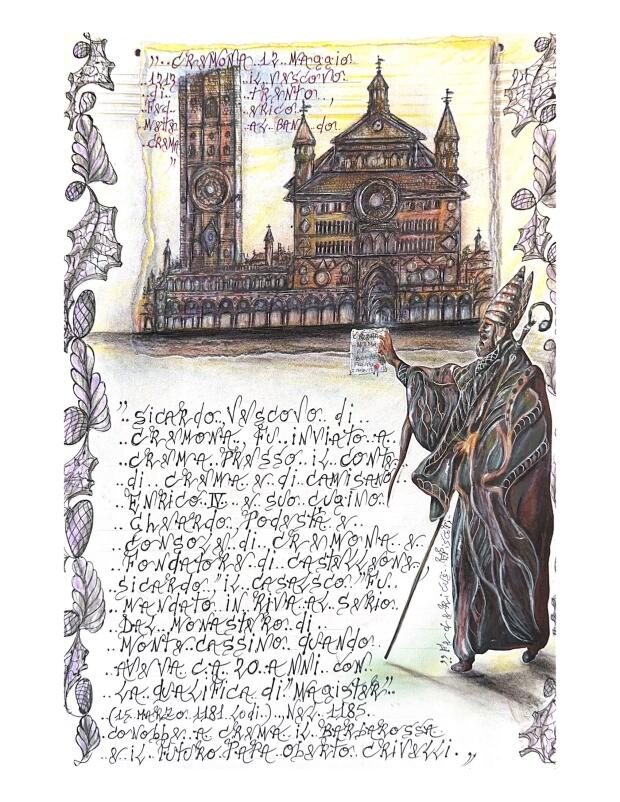 „..CREMONA 12..MAGGIO
1212 IL VESCOVO
di.. TRENTO
FED ERICO
METTE AL BANDO
CREMA
"
CREMA
"..SICARDO..VESCOVO..di..
..CREMONA, FU..INVIATO..A..
..CREMA..PRESSO..IL CONTE..
..di..CREMA..E..di CAMISANO..
..ENRICO IV..E SUO..CUGINO
..GHERARDO, PODESTÀ..E
..CONSOLE..di..CREMONA..E
..FONDATORE..di CASTELLEONE
SICARDO "IL CASALSCO" FU..
..MANDATO..IN RIVA..AL SERIO..
..DAL..MONASTERO..di..
..MONTE..CASSINO..QUANDO..
..AVEVA..C.A. 20..ANNI..CON
..LA QUALIFICA..di "MAGISTER"..
(15..MARZO..1181..LODI.)..NEL..1185..
..CONOBBE..A CREMA..IL BARBAROSSA
..E IL FUTURO PAPA OBERTO CRIVELLI.."